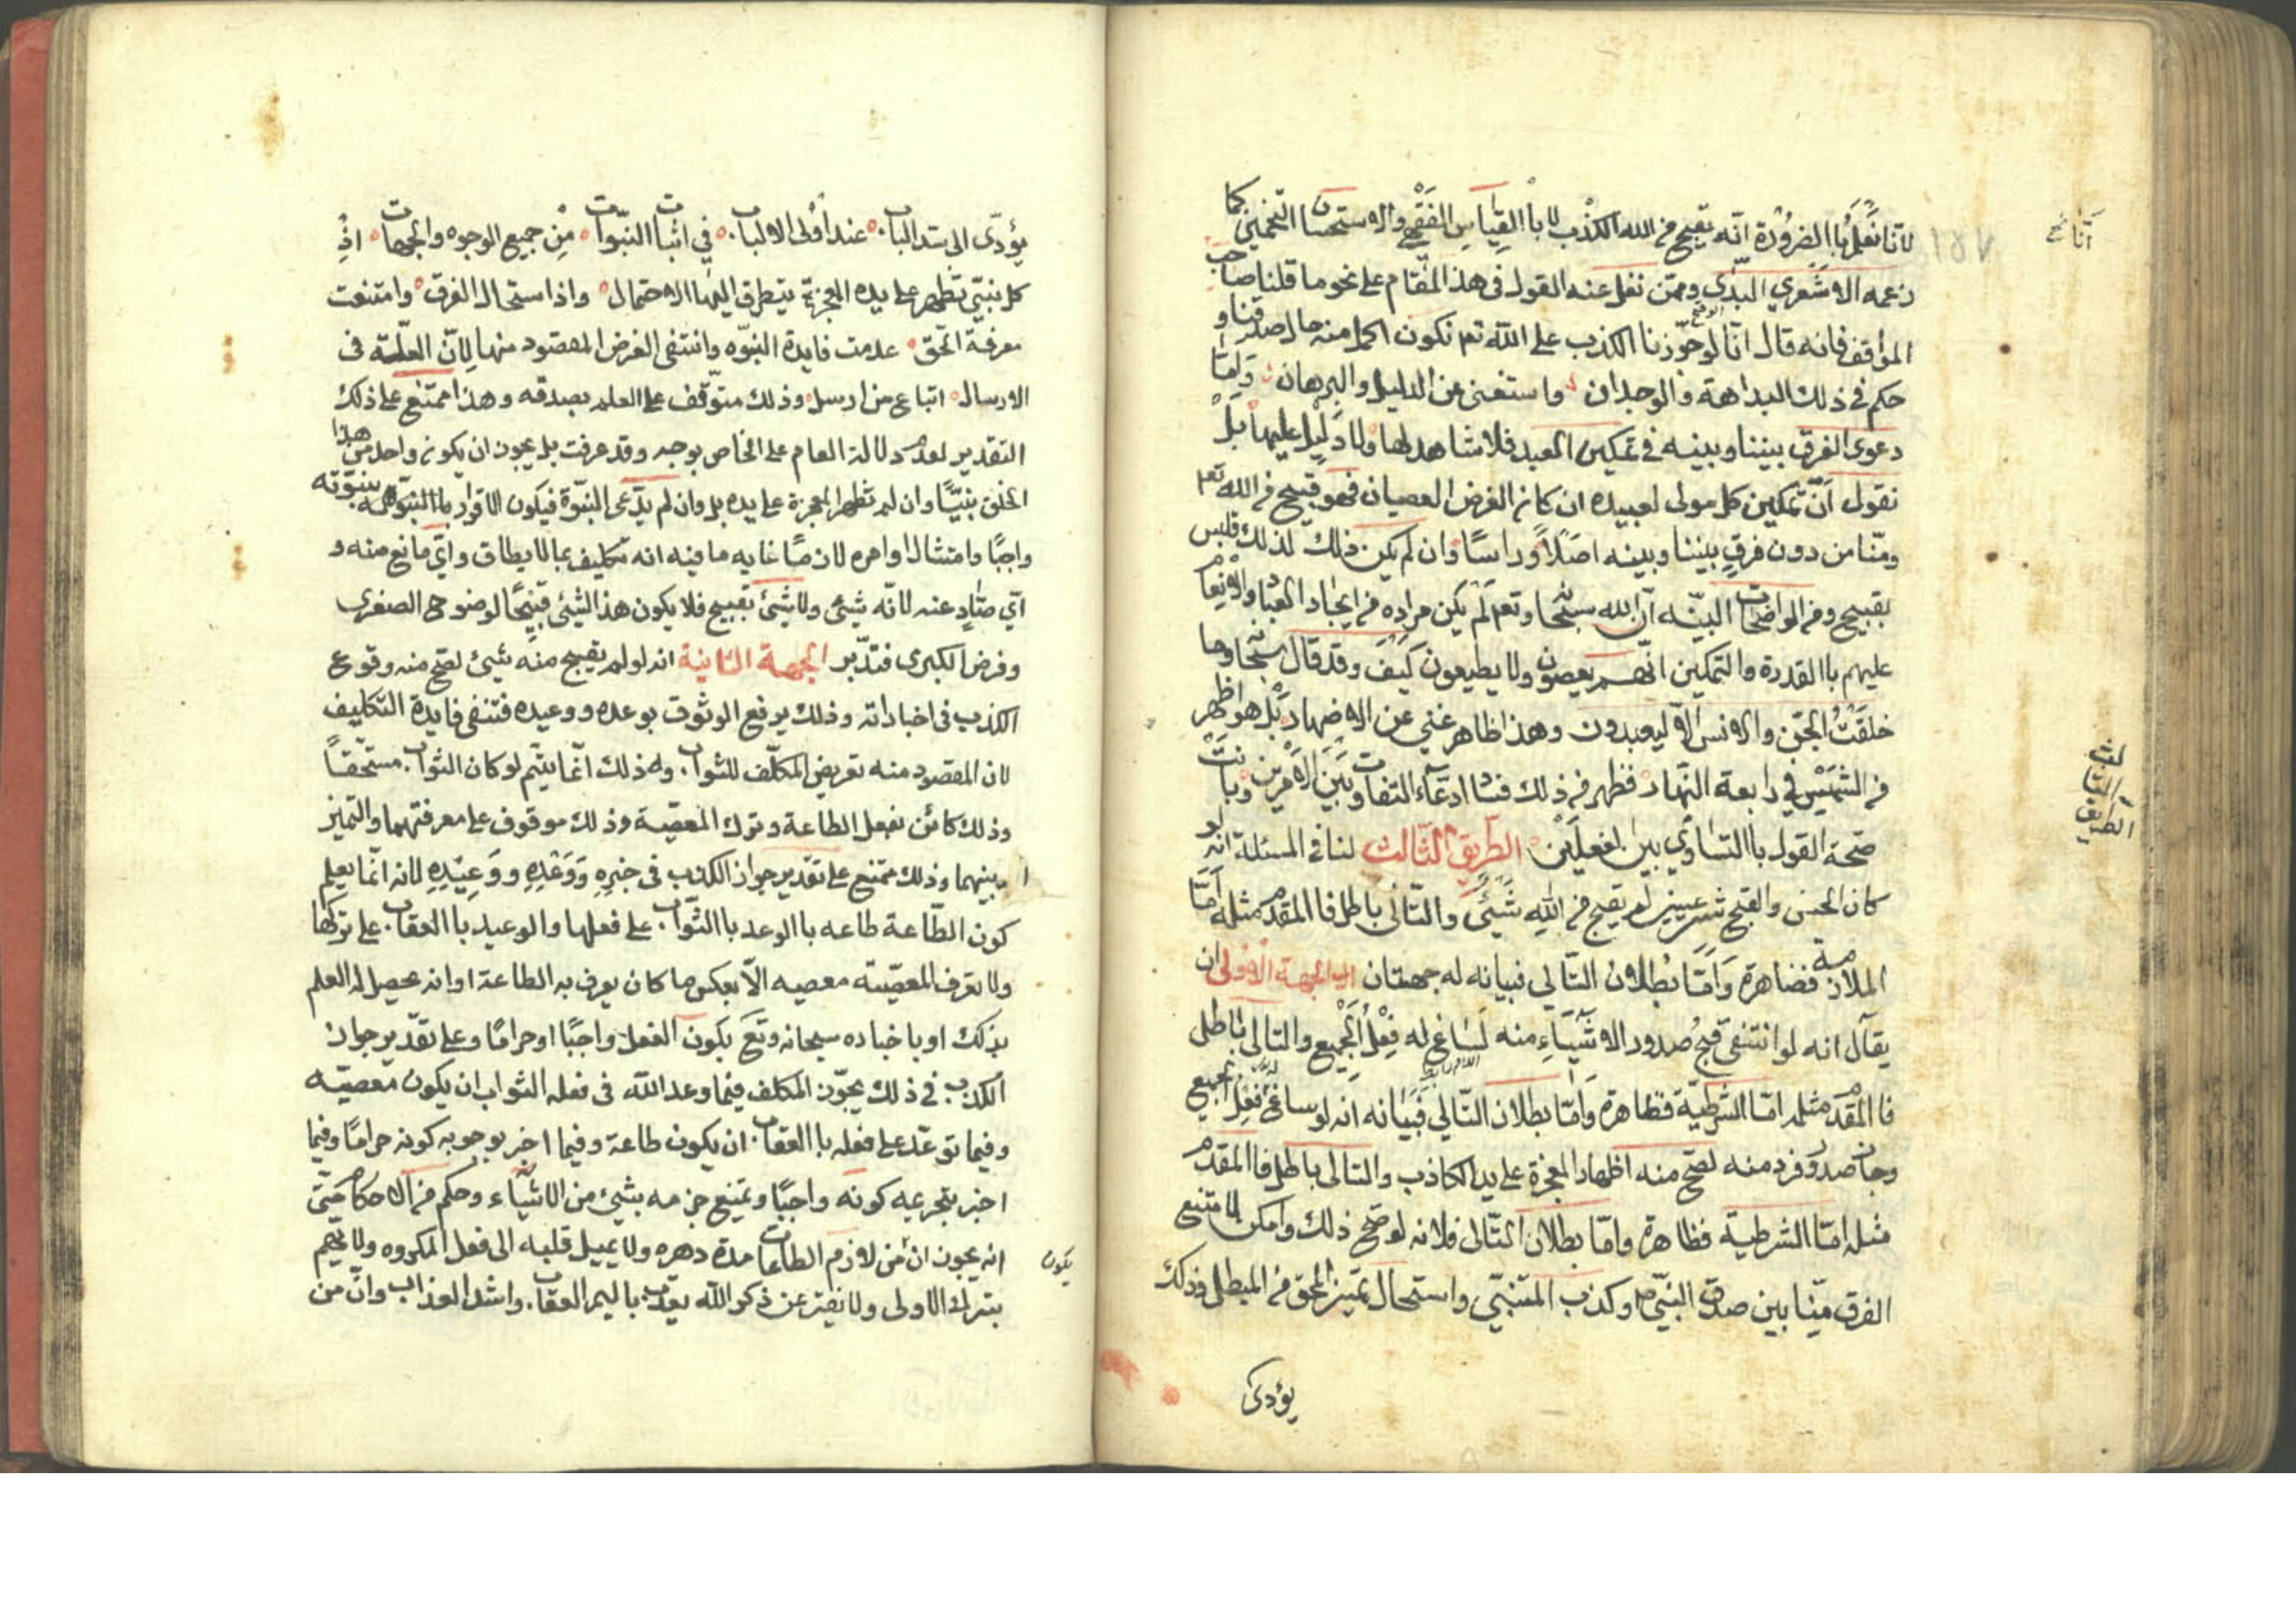 لانا نعلم باالضرورة انه يقبح من الله الكذب لا باالقياس الفقهي والاستحسان التخميني كما
زعمه الاشعري البدى وممن نقل عنه القول فى هذا المقام على نحو ما قلنا صاحب
المواقف فانه قال انا لو جوزنا الكذب على الله تعم نكون اكمل منه حال صدقنا و
حكم فى ذلك البداهة والوجدان واستغنى عن الدليل والبرهان واما
دعوى الفرق بيننا وبينه فى تمكين العبد فلا شاهد لها ولا دليل عليها بل
نقول ان تمكين كل مولى لعبيده ان كان الغرض العصيان فهو قبيح من الله تعم
ومنا من دون فرق بيننا وبينه اصلا وراسا وان لم يكن ذلك لذلك فليس
بقبيح ومن الواضحات البينه ان الله سبحانه وتعم لم يكن مراده من ايجاد العباد والانعام
عليهم باالقدرة والتمكين انهم يعصون ولا يطيعون كيف وقد قال سبحانه وما
خلقت الجن والانس الا ليعبدون وهذا ظاهر غني عن الاضهار بل هو اظهر
من الشمس في رابعة النهار فظهر من ذلك فساد ادعاء التفاوت بين الامرين وبانت
صحة القول باالتساوي بين الفعلين الطريق الثالث لنا فى المسئلة انه لو
كان الحسن والقبح شرعيين لم يقبح من الله شيئ والتالى باطل فاالمقدم مثله اما
الملازمة فضاهرة واما بطلان التالي فبيانه له جهتان الجهة الاولى ان
يقال انه لو انتفى قبح صدور الاشياء منه لساغ له فعل الجميع والتالى باطل
فاالمقدم مثله اما الشرطية فظاهرة واما بطلان التالي فبيانه انه لو ساغ له فعل الجميع
وجاز صدور فرد منه لصح منه اظهار المعجزة على يد الكاذب والتالى باطل فاالمقدم
مثله اما الشرطية فظاهرة واما بطلان التالى فلانه لو صح ذلك وامكن لامتنع
الفرق منا بين صدق النبي ص وكذب المتنبي واستحال تميز المحق من المبطل وذلك
يؤدى
يؤدى الى سد الباب عند اولى الالباب في اثبات النبوات من جميع الوجوه والجهات اذ
كل نبي تظهر على يده المعجزة يتطرق اليها الاحتمال واذا استحال الفرق وامتنعت
معرفة الحق علامت فايدة النبوه وانتفى الغرض المقصود منها لان العلة فى
الارسال اتباع من ارسل وذلك متوقف على العلم بصدقه وهذا ممتنع على ذلك
التقدير لعدم دلالة العام على الخاص بوجه وقد عرفت بل يجوز ان يكون واحد من هذا
الخلق نبيا وان لم تظهر المعجزة على يده بل وان لم يدعى النبوة فيكون الاقرار بنبوته
واجبا وامتثال اوامره لازما غايه ما فيه انه تكليف بما لا يطاق واي مانع منه و
اي صاد عنه لانه شيئ ولا شيئ بقبيح فلا يكون هذا الشئ قبيحا لوضوح الصغرى
وفرض الكبرى فتدبر الجهة الثانية انه لو لم يقبح منه شيئ لصح منه وقوع
الكذب فى اخباراته وذلك يرفع الوثوق بوعده ووعيده فتنفى فايدة التكليف
لان المقصود منه تعريض المكلف للثواب وله ذلك انما يتم لو كان الثواب مستحقا
وذلك كائن بفعل الطاعة وترك المعصية وذلك موقوف على معرفتهما والتميز
بينهما وذلك ممتنع على تقدير جواز الكذب فى خبره ووعده ووعيده لانه انما يعلم
كون الطاعة طاعه باالوعد باالثواب على فعلها والوعيد باالعقاب على تركها
ولا تعرف المعصيته معصيه الا بعكس ما كان يعرف به الطاعة او انه يحصل له العلم
بذلك او باخباره سبحانه وتع بكون الفعل واجبا او حراما وعلى تقدير جواز
الكذب في ذلك يجوز المكلف فيما وعد الله فى فعله الثواب ان يكون معصيه
وفيما توعد على فعله باالعقاب ان يكون طاعة وفيما اخبر بوجوبه كونه حراما وفيما
اخبر بتحريمه كونه واجبا ويمتنع جزمه بشيئ من الاشياء وحكم من الاحكام حتى
انه يجوز ان من لازم الطاعات مدة دهره ولا يميل قلبه الى فعل المكروه ولا يهم
يكون
بترك الاولى ولا يفتر عن ذكر الله يعذب باليم العقاب واشد العذاب وان من